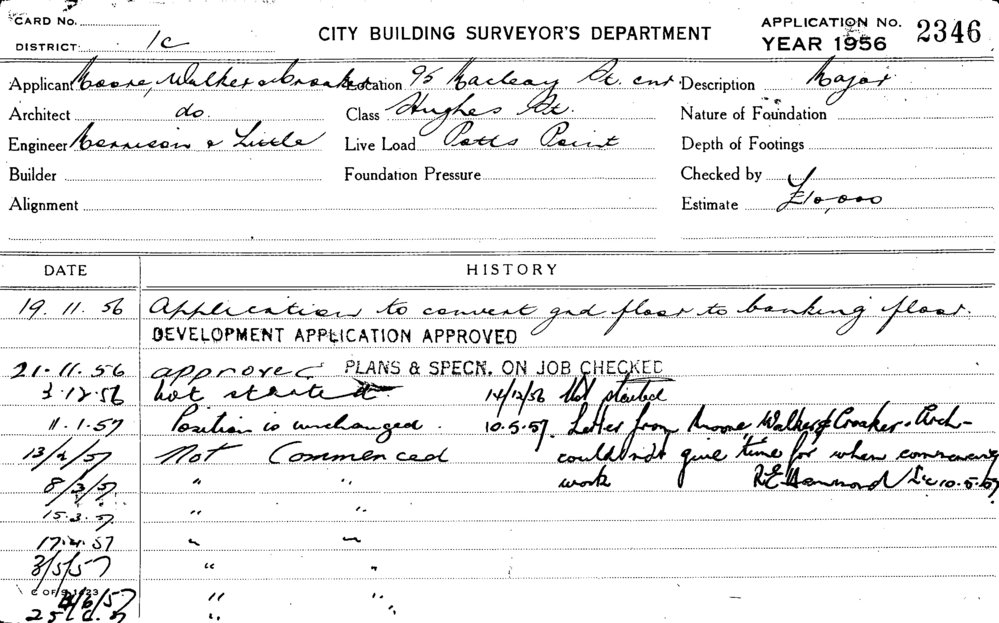 CARD NO.
DISTRICT 1c
CITY BUILDING SURVEYOR'S DEPARTMENT
APPLICATION NO. 2346
YEAR 1956
Applicant Moore, Walker & Croaker Location 95 Macleay St. cnr Description Major
Architect do. Class Hughes St. Nature of Foundation
Engineer Morrison & Little Live Load Potts Point Depth of Footings
Builder Foundation Pressure Checked by
Alignment Estimate £10,000
DATE HISTORY
19.11.56 Application to convert gnd floor to banking floor.
DEVELOPMENT APPLICATION APPROVED
21.11.56 approved PLANS & SPECN. ON JOB CHECKED
3.12.56 Not started 14/12/56 Not started
11.1.57 Position is unchanged. 10.5.57. Letter from Moore Walker & Croaker. Arch-
13/2/57 Not Commenced couldn't give time for when commencing
8/3/57 " " work R.E. Hammond 10.5.57
15.3.57 " "
17.4.57 " "
3/5/57 " "
C OF S 1423
/6/57 " "
25 " "